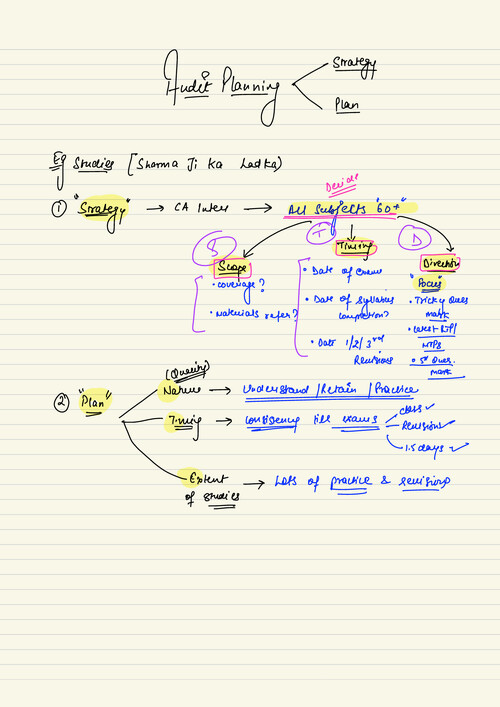 Strategy
Audit Planning
Plan
Eg Studies [Sharma Ji Ka Ladka)
Decide
① "Strategy" → CA Inter → All Subjects "60+"
S T D
Scope Timing Direction
"Focus"
• coverage?
• Materials refer?
• Date of Exams
• Date of Syllabus completion?
• Date 1/2/3rd Revisions
• Tricky Ques mark
• Latest RTP/ MTPS
• Ques. mark
(Quality)
② "Plan" Nature → Understand / Retain / Practice
Timing → Consistency till exams
class ✓
Revisions ✓
1.5 days ✓
Extent of studies → Lots of practice & revisions